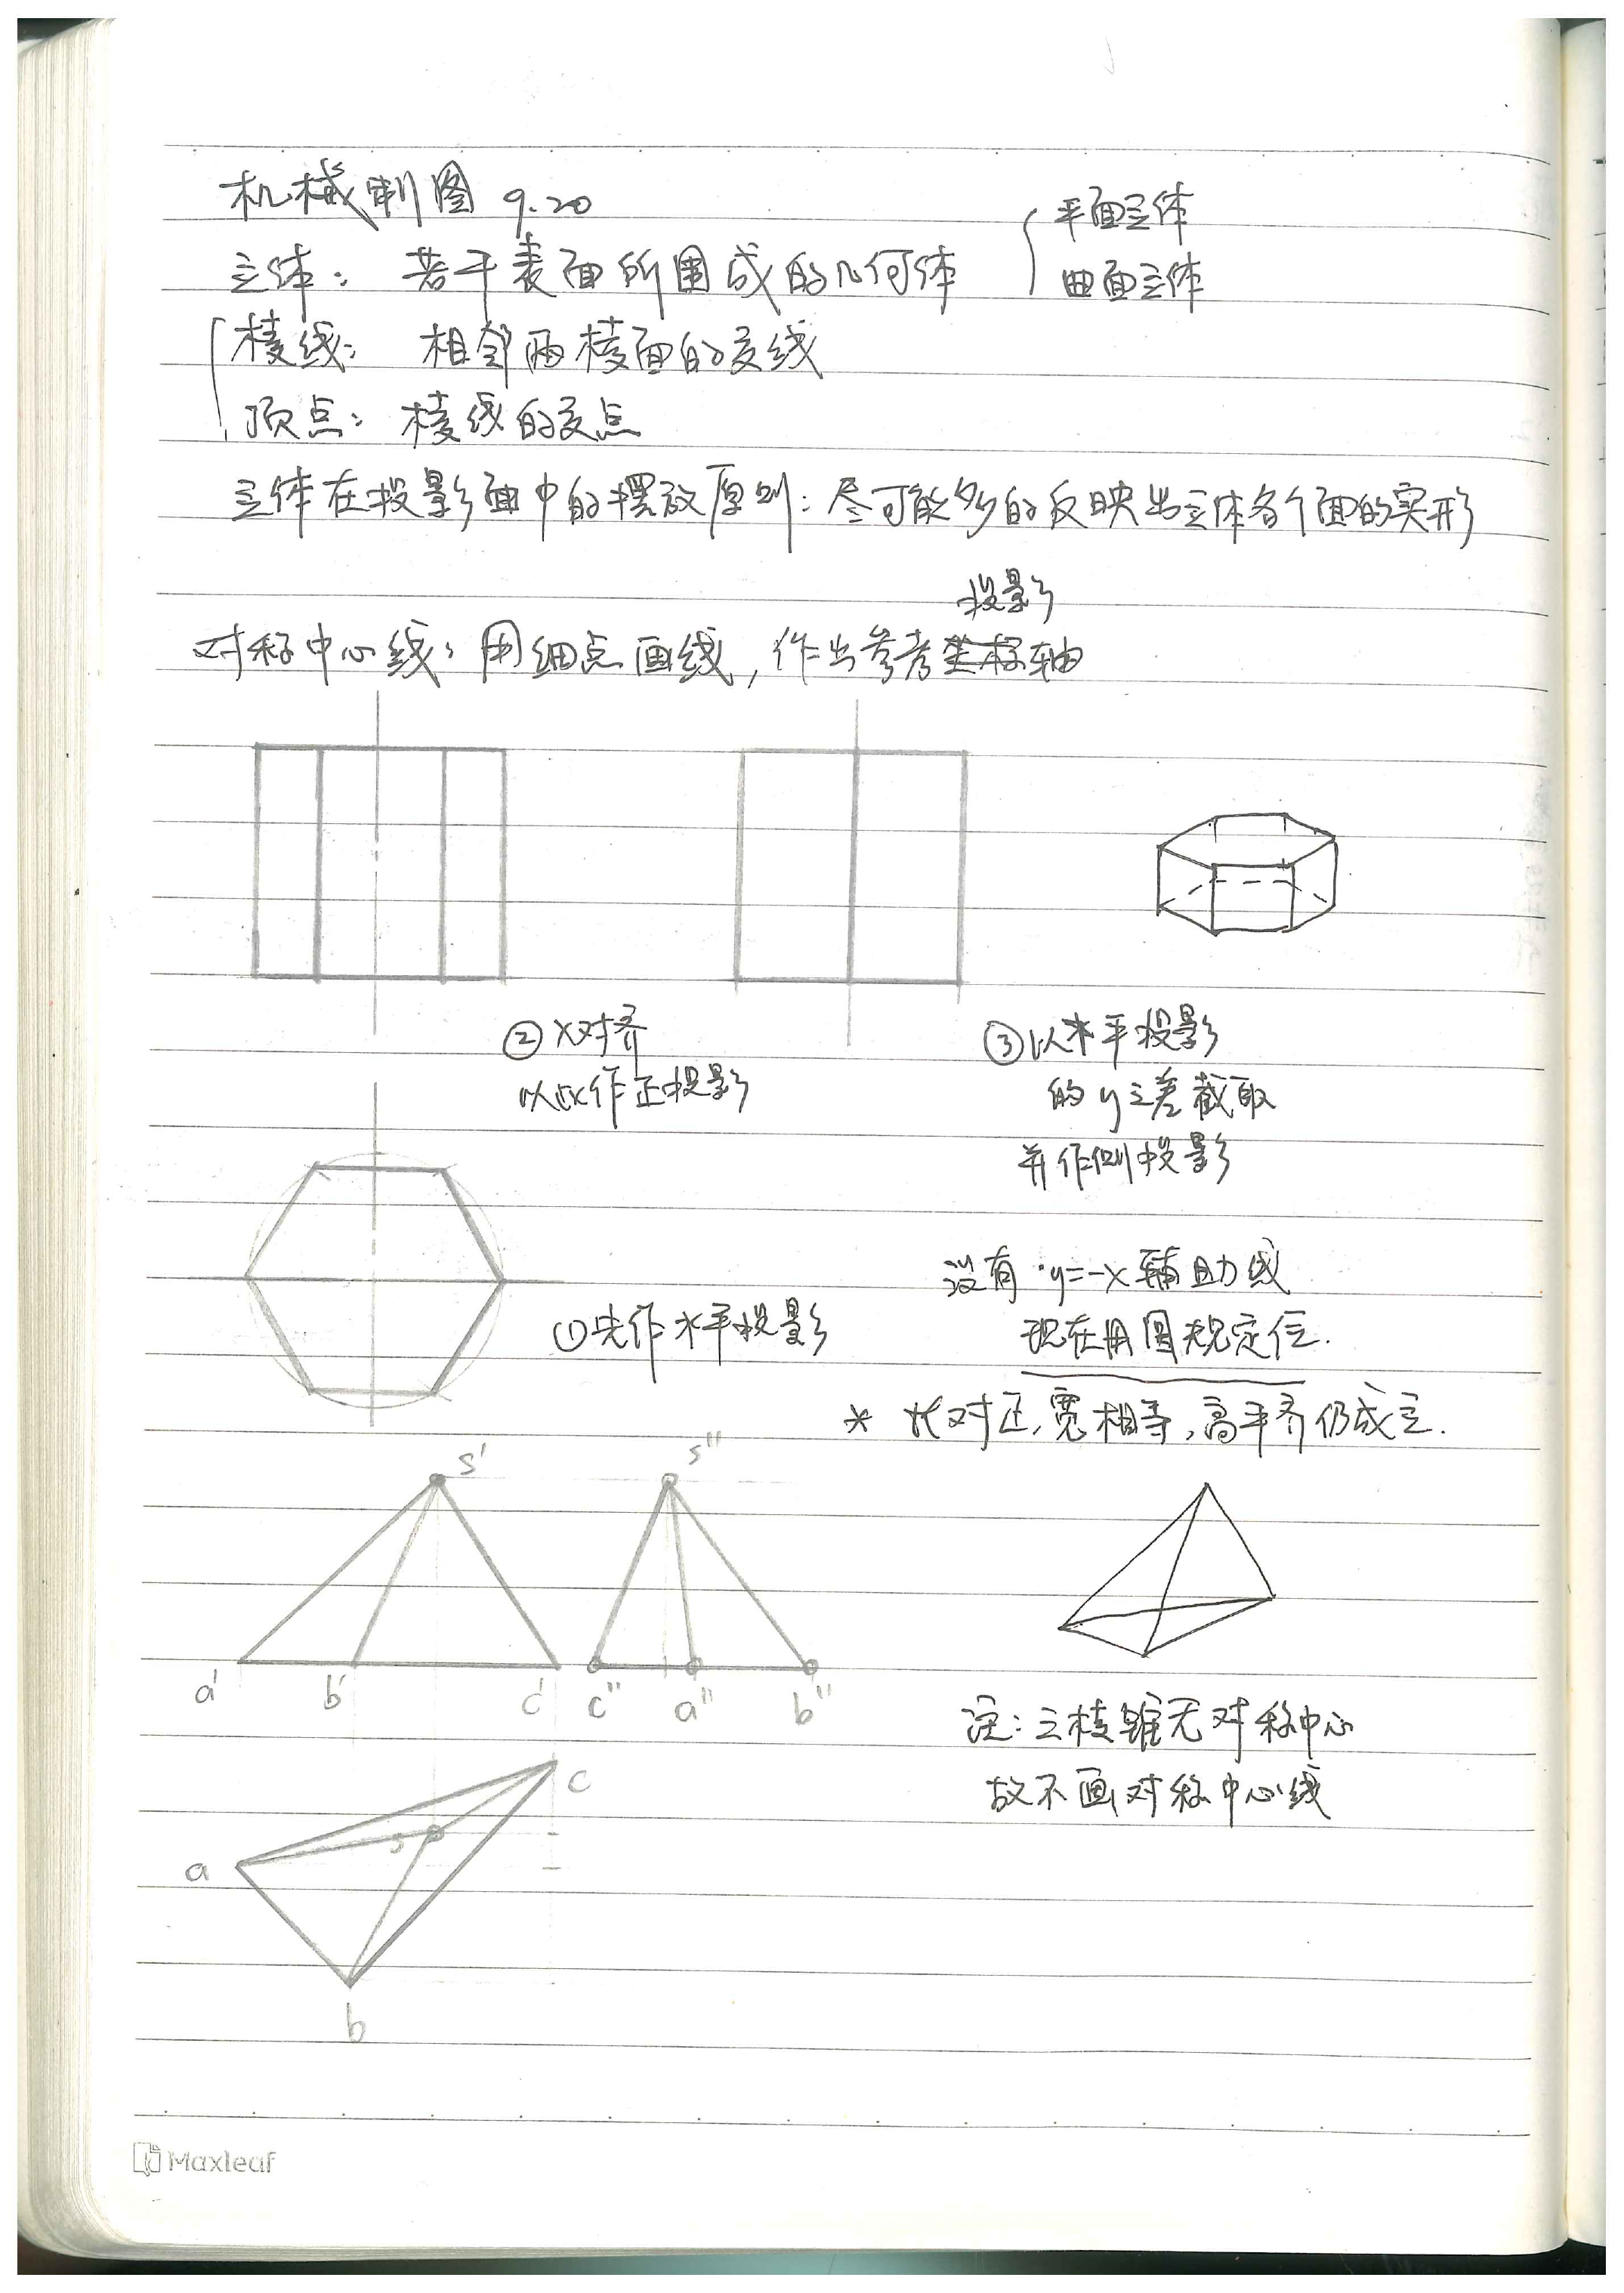 机械制图 9.20
立体：若干表面所围成的几何体
平面立体
曲面立体
棱线：相邻两棱面的交线
顶点：棱线的交点
立体在投影面中的摆放原则：尽可能多的反映出立体各个面的实形
投影
对称中心线：用细点画线，作出参考坐标轴
②X对齐
以此作正投影
③以水平投影
的y之差截取
并作侧投影
①先作水平投影
没有y=-x辅助线
现在用圆规定位.
* 长对正,宽相等,高平齐仍成立.
s' s"
a' b' c' c" a" b"
注：三棱锥无对称中心
故不画对称中心线
c
s
a
b
Maxleaf